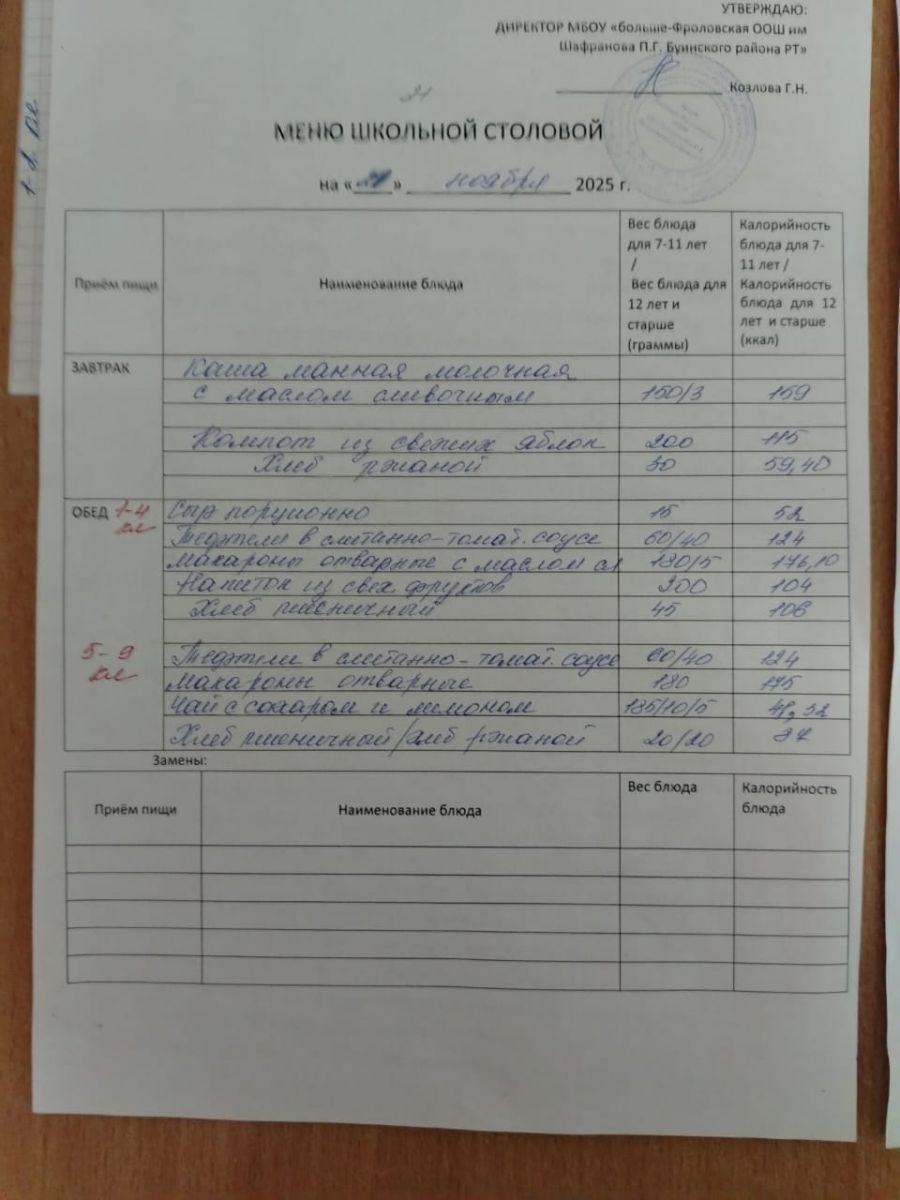 УТВЕРЖДАЮ:
ДИРЕКТОР МБОУ «больше-Фроловская ООШ им
Шафранова П.Г. Буинского района РТ»
Козлова Г.Н.
МЕНЮ ШКОЛЬНОЙ СТОЛОВОЙ
на « » ноября 2025 г.
Приём пищи Наименование блюда Вес блюда для 7-11 лет / Вес блюда для 12 лет и старше (граммы) Калорийность блюда для 7-11 лет / Калорийность блюда для 12 лет и старше (ккал)
ЗАВТРАК Каша манная молочная
с маслом сливочным 150/3 159
Компот из свежих яблок 200 115
Хлеб ржаной 30 59,40
ОБЕД 1-4 кл Сыр порционно 15 52
Тефтели в сметанно-томат. соусе 60/40 124
Макароны отварные с маслом сл 180/5 176,10
Напиток из свеж фруктов 200 104
Хлеб пшеничный 45 106
5-9 кл Тефтели в сметанно-томат. соусе 60/40 124
Макароны отварные 180 175
Чай с сахаром и лимоном 185/10/5 41,32
Хлеб пшеничный/хлеб ржаной 20/20 37
Замены:
Приём пищи Наименование блюда Вес блюда Калорийность блюда